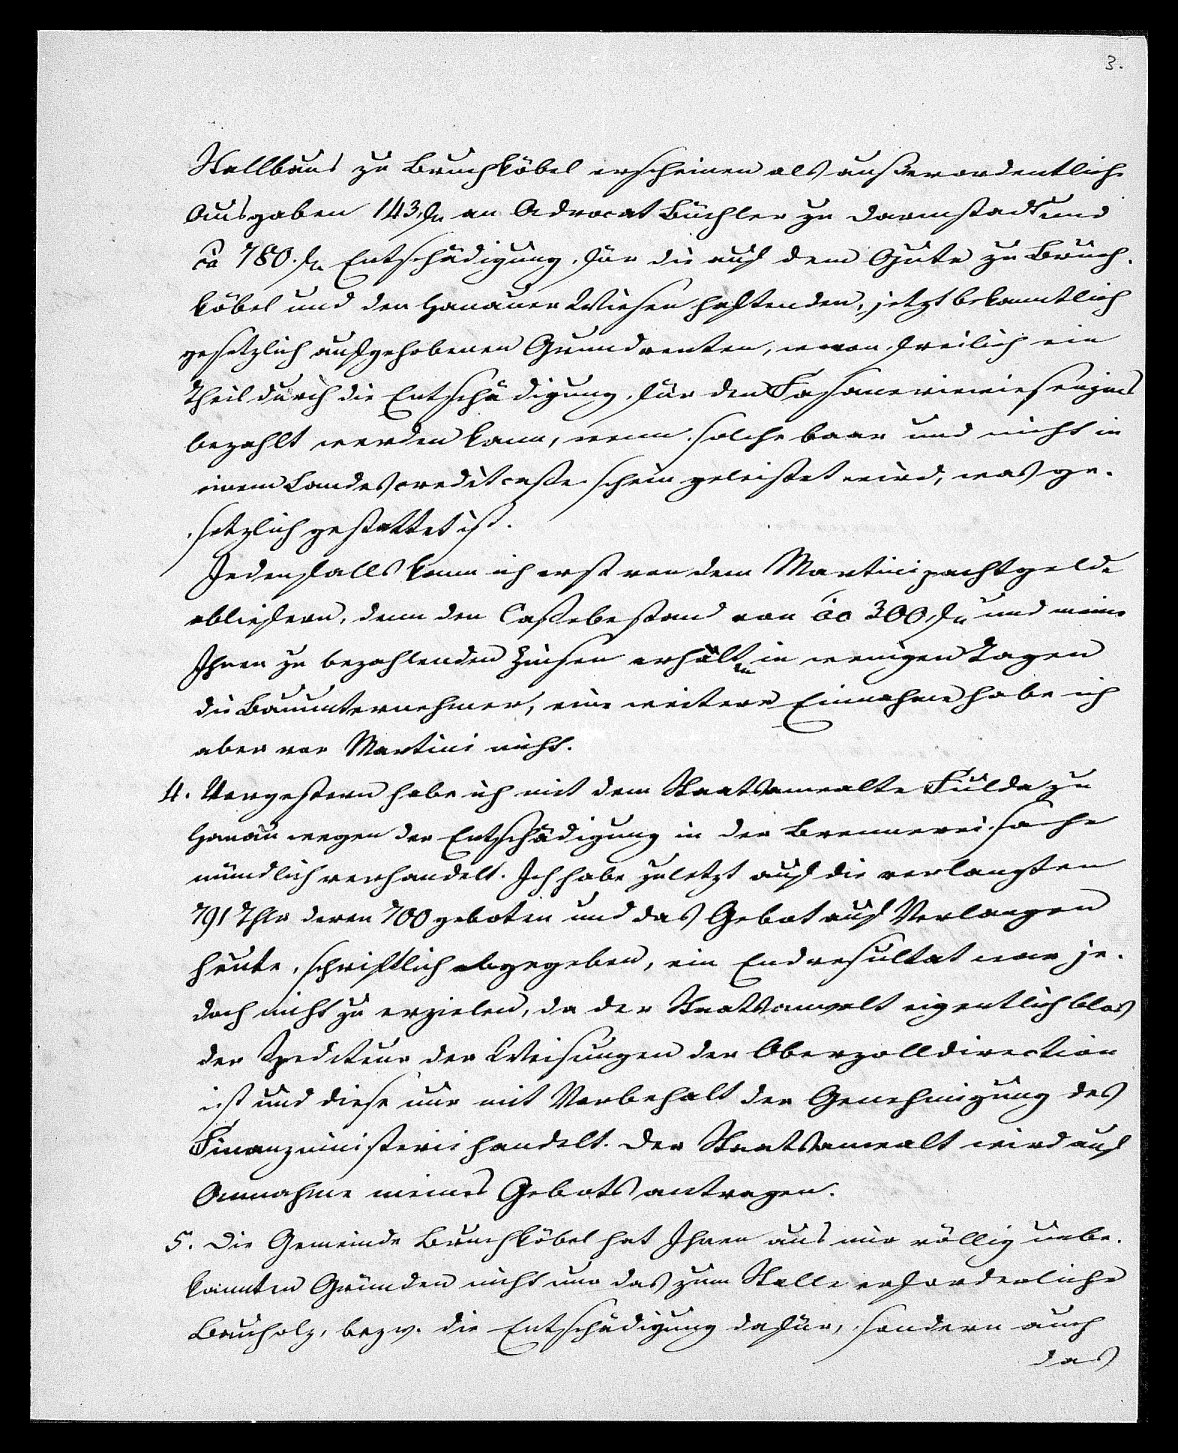 3.
Stallbaus zu Bruchköbel erscheinen als außerordentliche
Ausgaben 143 fl an Advocat Büchler zu Darmstadt und
ca 780. fl Entschädigung, für die auf dem Gute zu Bruch-
köbel und den Hanauer Wiesen haftenden, jetzt bekanntlich
gesetzlich aufgehobenen Grundrenten, wovon freilich ein
Theil durch die Entschädigung für den Fasaneriewiesenzins
bezahlt werden kann, wenn solche baar und nicht in
einem Landescreditcasse schein geleistet wird, was ge-
setzlich gestattet ist.
Jedenfalls kann ich erst von dem Martinipachtgelde
abliefern, denn den Cassebestand von 300 fl und meine
Ihnen zu bezahlenden Zinsen erhält in wenigen Tagen
die Bauunternehmer, eine weitere Einnahme habe ich
aber vor Martini nicht.
4. Vorgestern habe ich mit dem Staatsanwalte Fulda zu
Hanau wegen der Entschädigung in der Brennereisache
mündlich verhandelt. Ich habe zuletzt auf die verlangten
791 Thlr deren 700 geboten und das Gebot auf Verlangen
heute, schriftlich abgegeben, ein Endresultat war je-
doch nicht zu erzielen, da der Staatsanwalt eigentlich blos
der Spediteur der Weisungen der Oberzolldirection
ist und diese nur mit Vorbehalt der Genehmigung des
Finanzministerii handelt. Der Staatsanwalt wird auf
Annahme meines Gebots antragen.
5. Die Gemeinde Bruchköbel hat Ihnen aus mir völlig unbe-
kannten Gründen nicht nur das zum Stalle erforderliche
Bauholz, bezw. die Entschädigung dafür, sondern auch
das